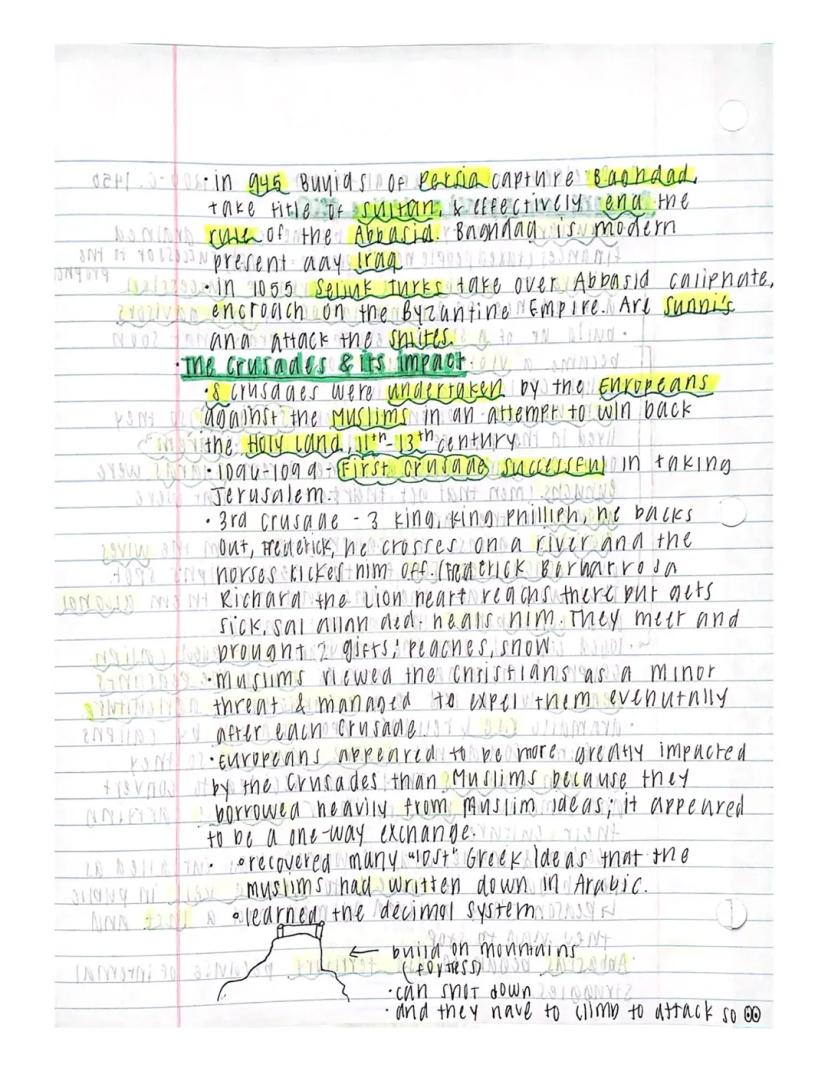 ·in 945 Buyids of Persia capture Baghdad,
take title of sultan, & effectively end the
rule of the Abbasid. Baghdad is modern
present day Iraq
·in 1055 Seljuk Turks take over Abbasid caliphate,
encroach on the Byzantine Empire. Are Sunni's
and attack the Shiites.
·The Crusades & its impact.
·8 crusades were undertaken by the Europeans
against the Muslims in an attempt to win back
the Holy Land, 11th-13th century
·1096-1099-First crusade successful in taking
Jerusalem.
·3rd crusade - 3 king, king Philliph, he backs
out, Frederick, he crosses on a river and the
horses kickes him off. (Frederick Barbarrosa
Richard the Lion heart reachs there but gets
sick, sal allah ded. heals him. They meet and
brought 2 gifts; peaches, snow
·Muslims viewed the Christians as a minor
threat & managed to expel them evenutally
after each Crusade.
·Europeans appeared to be more greatly impacted
by the Crusades than Muslims because they
borrowed heavily from Muslim ideas; it appeared
to be a one-way exchange.
· •recovered many "lost" Greek ideas that the
muslims had written down in Arabic.
•learned the decimal system
← build on mountains
(fortress)
·can shot down
·and they have to climb to attack so